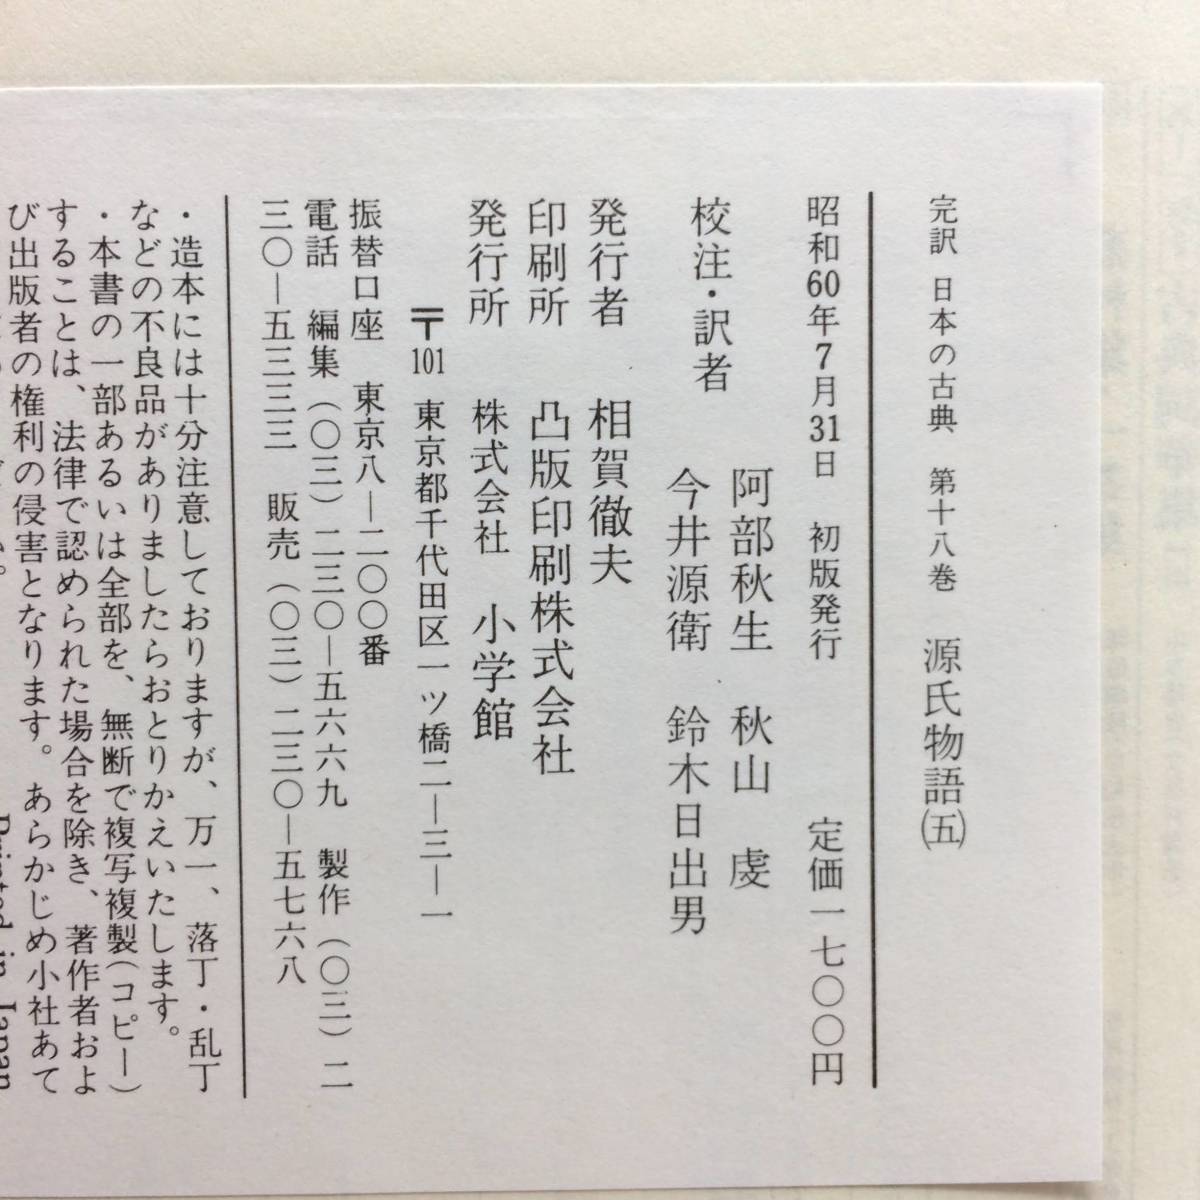 完訳 日本の古典 第十八巻 源氏物語(五)
昭和60年7月31日 初版発行 定価一七〇〇円
校注・訳者 阿部秋生 秋山 虔
今井源衛 鈴木日出男
発行者 相賀徹夫
印刷所 凸版印刷株式会社
発行所 株式会社 小学館
〒101 東京都千代田区一ツ橋二―三―一
振替口座 東京八―二〇〇番
電話 編集(〇三)二三〇―五六六九 製作(〇三)二
三〇―五三三三 販売(〇三)二三〇―五七六八
・造本には十分注意しておりますが、万一、落丁・乱丁
などの不良品がありましたらおとりかえいたします。
・本書の一部あるいは全部を、無断で複写複製(コピー)
することは、法律で認められた場合を除き、著作者およ
び出版者の権利の侵害となります。あらかじめ小社あて
Printed in Japan